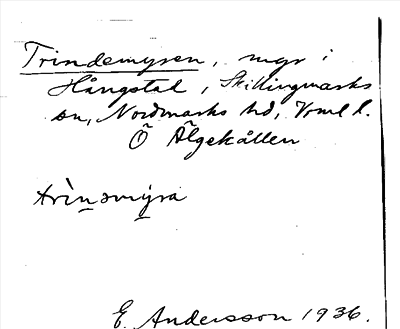 Trindemyren, mgr i
Hångstad, Skillingmarks
sn, Nordmarks hd, Vrml l.
Ö Älgekållen
trìnǝmy̱ra
E. Andersson 1936.